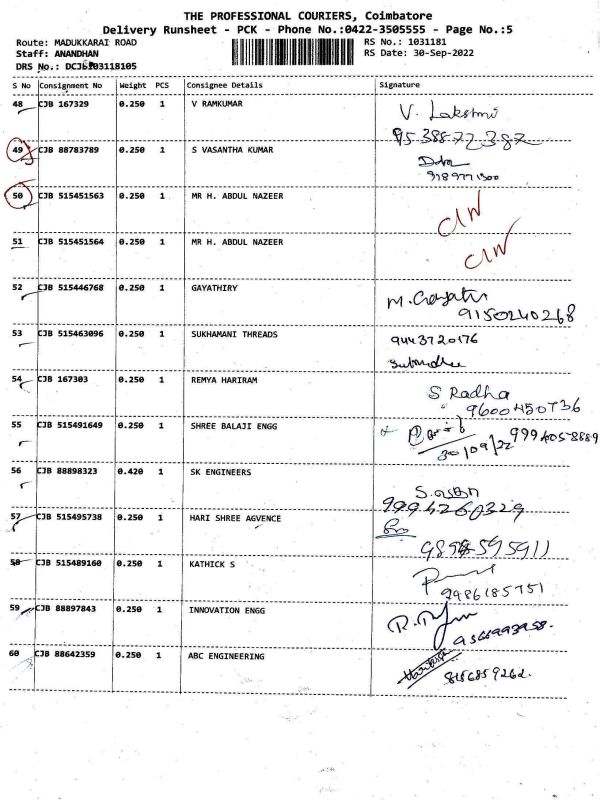 THE PROFESSIONAL COURIERS, Coimbatore
Delivery Runsheet - PCK - Phone No.:0422-3505555 - Page No.:5
Route: MADUKKARAI ROAD
RS No.: 1031181
Staff: ANANDHAN
RS Date: 30-Sep-2022
DRS No.: DCJB103118105
S No Consignment No Weight PCS Consignee Details Signature
48 CJB 167329 0.250 1 V RAMKUMAR V. Lakshmi
95388 72387
49 CJB 88783789 0.250 1 S VASANTHA KUMAR
50 CJB 515451563 0.250 1 MR H. ABDUL NAZEER CIW
51 CJB 515451564 0.250 1 MR H. ABDUL NAZEER CIW
52 CJB 515446768 0.250 1 GAYATHIRY M. Gayatri
9150240268
53 CJB 515463096 0.250 1 SUKHAMANI THREADS 9443720176
54 CJB 167303 0.250 1 REMYA HARIRAM S Radha
9600450736
55 CJB 515491649 0.250 1 SHREE BALAJI ENGG
30/09/22 9994058889
56 CJB 88898323 0.420 1 SK ENGINEERS
9994260329
57 CJB 515495738 0.250 1 HARI SHREE AGVENCE
58 CJB 515489160 0.250 1 KATHICK S
59 CJB 88897843 0.250 1 INNOVATION ENGG
60 CJB 88642359 0.250 1 ABC ENGINEERING
8156859262.